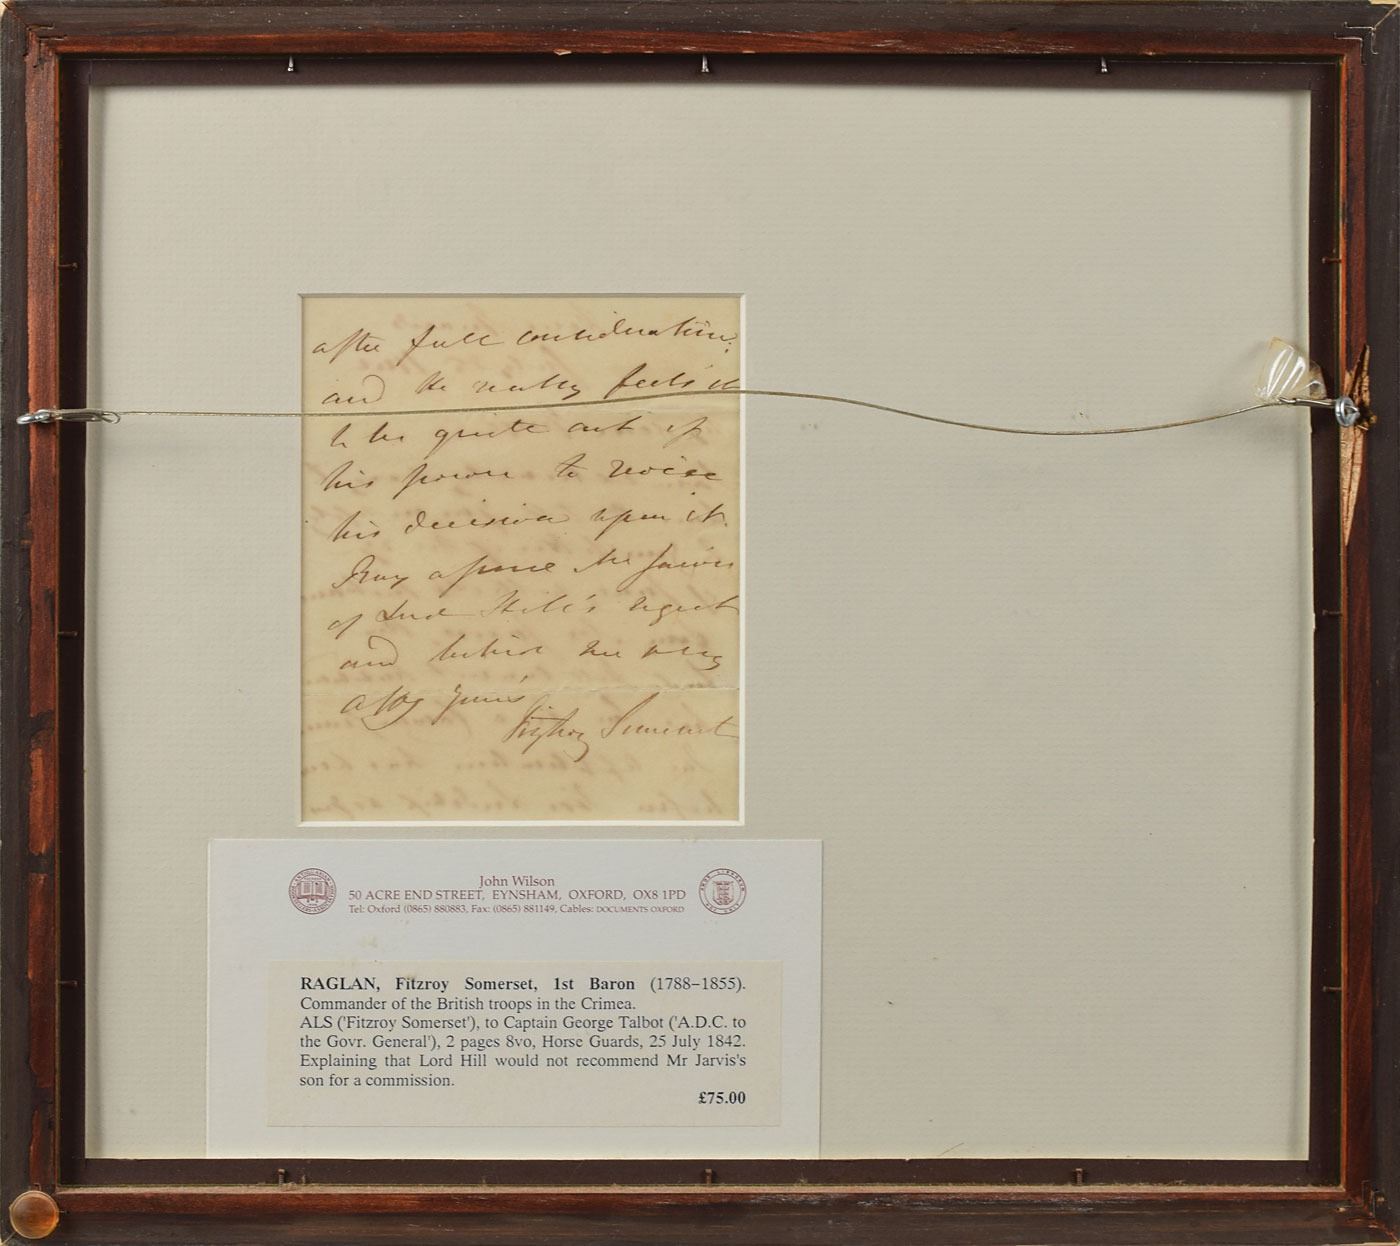 after full consideration;
and He really feels it
to be quite out of
his power to revise
his decision upon it.
Pray assure Mr Jarvis
of Lord Hill's regret
and believe me very
Yours
Fitzroy Somerset
John Wilson
50 ACRE END STREET, EYNSHAM, OXFORD, OX8 1PD
Tel: Oxford (0865) 880883, Fax: (0865) 881149, Cables: DOCUMENTS OXFORD
RAGLAN, Fitzroy Somerset, 1st Baron (1788–1855).
Commander of the British troops in the Crimea.
ALS ('Fitzroy Somerset'), to Captain George Talbot ('A.D.C. to
the Govr. General'), 2 pages 8vo, Horse Guards, 25 July 1842.
Explaining that Lord Hill would not recommend Mr Jarvis's
son for a commission.
£75.00